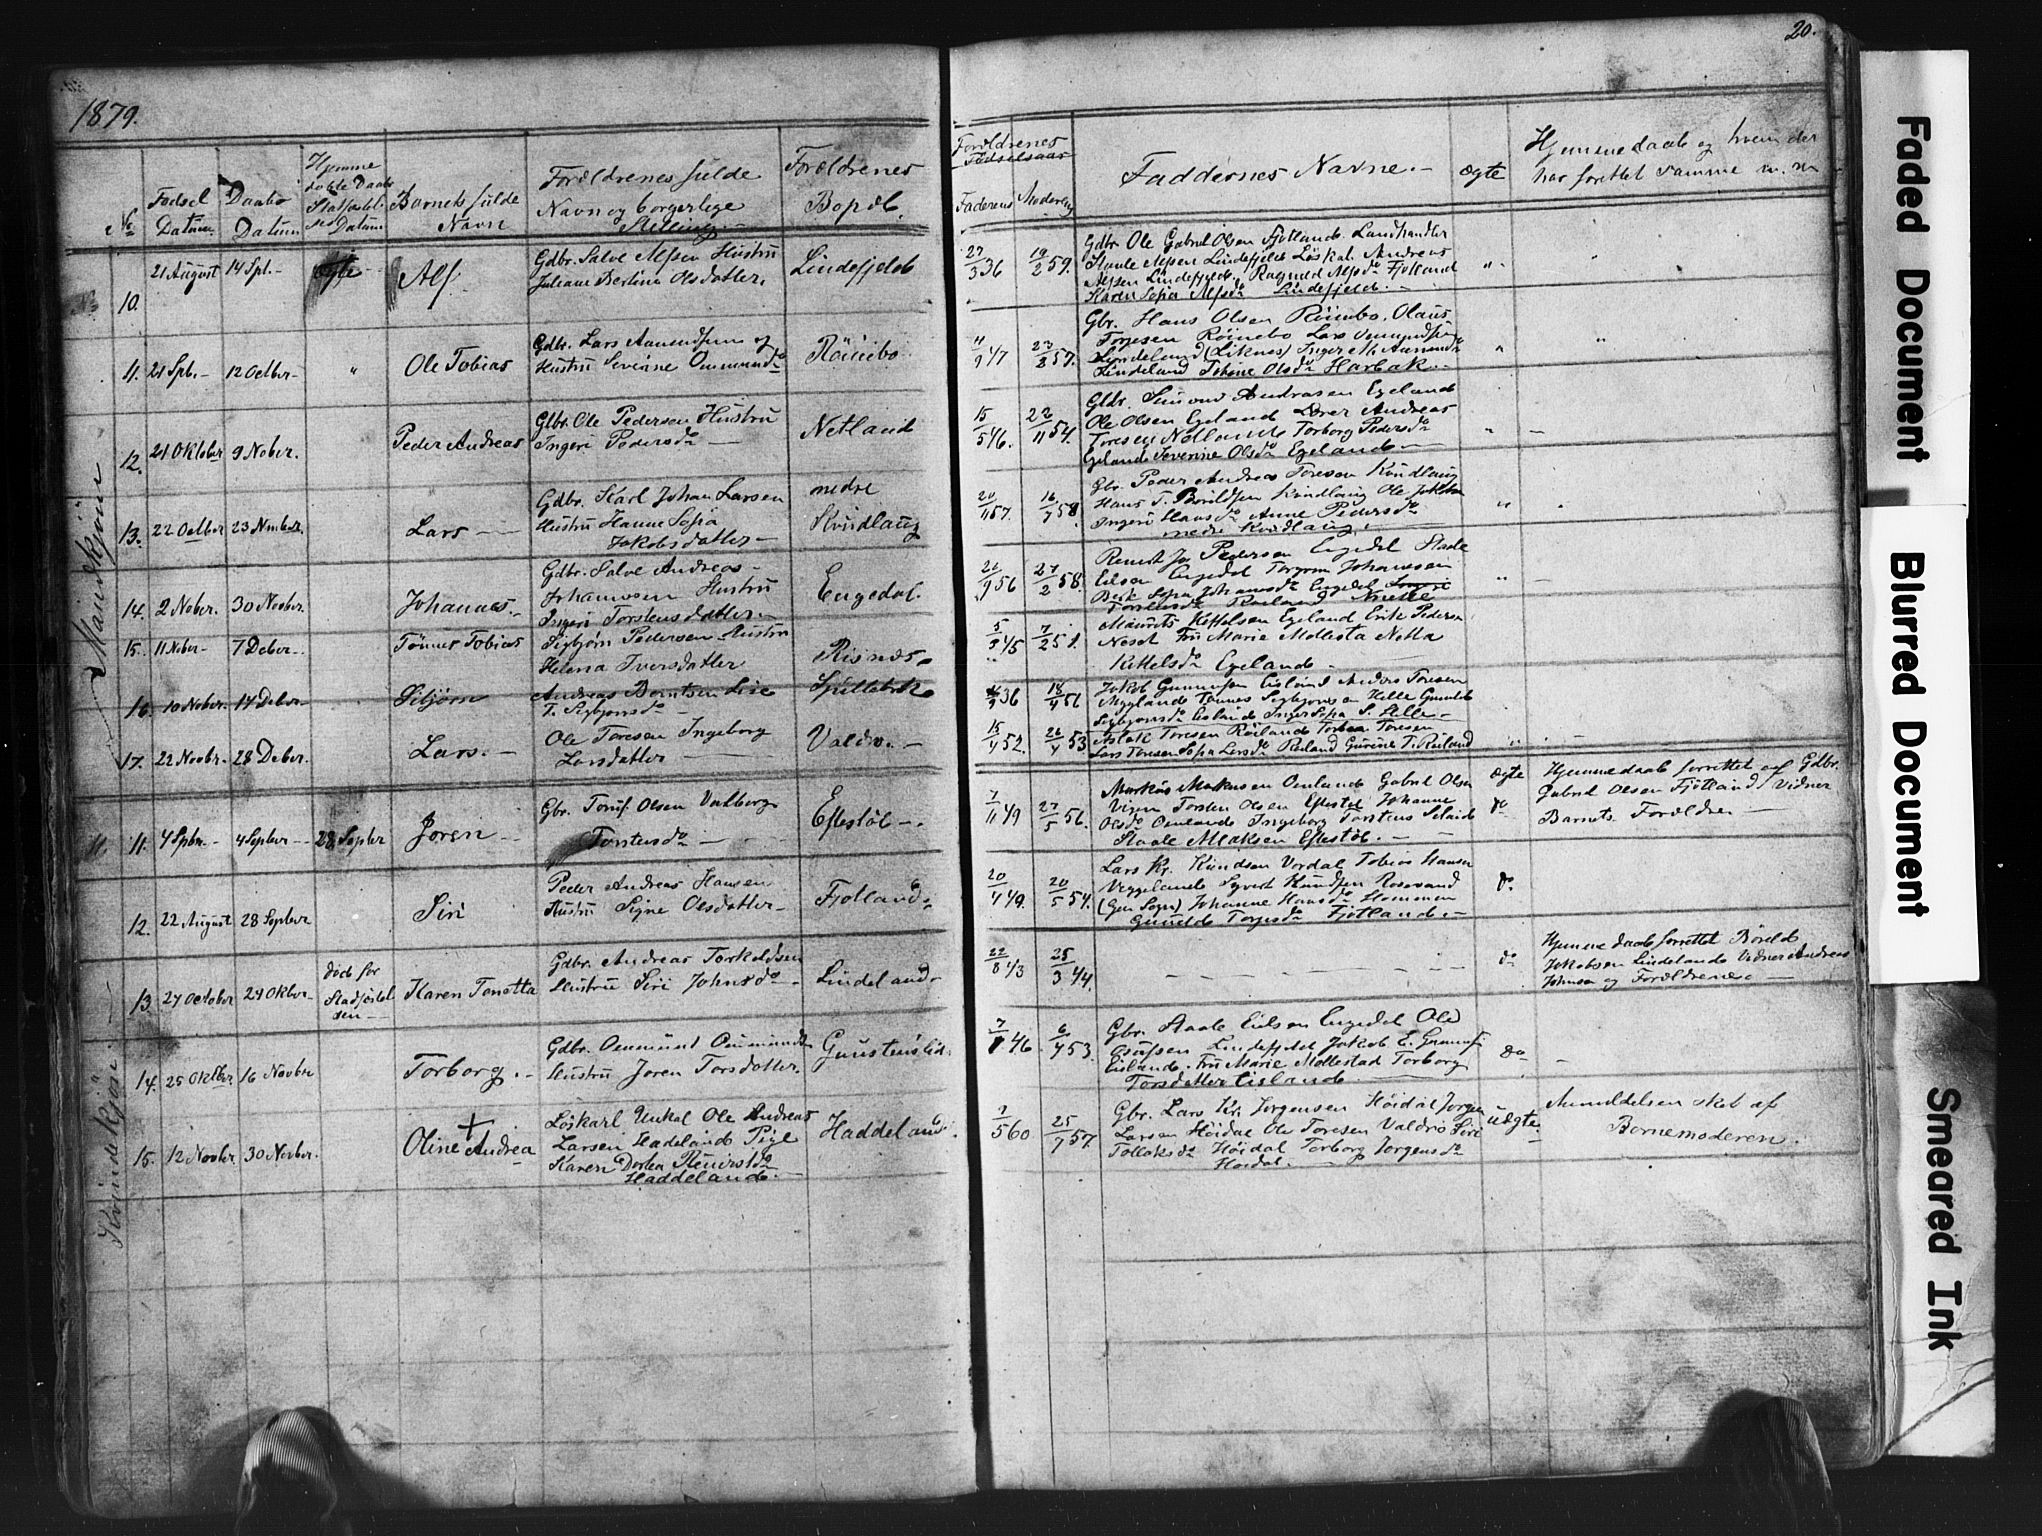 1879.
20.
No
Fødsel Datum
Daabs Datum
Hjemme døbte Daabs Stadfæstelses Datum
Barnets fulde Navn
Forældrenes fulde Navn og borgerlige Stilling.
Forældrenes Bopæl.
Forældrenes Fødselsaar
Faderens Moderens
Faddernes Navne.
Ægte
Hjemmedaab og hvem der har forrettet samme m. m
Mandkjøn
10. 21 August 14 Spt. Ægte Alf.
Gdbr. Salve Alfsen Hustru
Juliane Bertine Olsdatter.
Lindefjeld
27/3 36 19/2 59.
Gdbr. Ole Gabriel Olsen Fjotland. Landhandler
Staale Alfsen Lindefjeld Løskal. Andreas
Alfsen Lindefjeld. Ragnild Alfsd. Fjotland
Karen Sofia Alfsd. Lindefjeld.
11. 21 Spt. 12 Octbr Ole Tobias
Gdbr. Lars Aamundsen og
Hustru Sevrine Ommunds
Röinebo
9 47 23/2 57.
Gbr. Hans Olsen Röinebo. Olaus
Torjesen Röinebo Lars
Lindeland (Liknes) Inger M.
Lindeland Tobine Olsd. Harbak.
12. 21 Oktober 9 Nober. Peder Andreas
Gbr. Ole Pedersen Hustru
Ingeri Pedersd.
Netland
15/5 46. 22/11 54.
Gdbr. Simon Andreasen Egeland
Ole Olsen Egeland Andreas
Toresen Netland Torborg Pedersd.
Egeland Severine Olsd. Egeland
13. 22 Octber 23 Novbr. Lars
Gdbr. Karl Johan Larsen
Hustru Hanne Sofia
Jakobsdatter
nedre
Kvindlaug
20/11 57. 16/7 58
Gbr. Peder Andreas Toresen Kvindlaug
Hans T. Kvindlaug Ole Jakobsen
Ingeri Hansd. Anne Pedersd.
nedre Kvindlaug.
14. 2 Nober. 30 Novber. Johannes.
Gdbr. Salve Andreas
Johannesen Hustru
Ingeri Torstensdatter
Engedal.
21/9 56 27/2 58.
Pedersen Engedal Staale
Eilsen Engedal Torgrim Johannesen
Sofia Johannesd. Engedal
Torstensd. Røiland
15. 11 Nober 7 Deber. Tønnes Tobias
Sigbjørn Pedersen Hustru
Helena Iversdatter
Risnes.
5/9 45 7/2 51.
Maurits Kittelsen Egeland Erik Pedersen
Neset Fru Marie Mollesta Netta
Kittelsd. Egeland
16. 10 Nober. 14 Deber.
Andreas Berntsen
T. Sigbjørnsd.
36 18/4 51
Jakob Gunnufsen Eisland Anders Toresen
Tønnes Sigbjørnsen Helle Gunild
Sigbjørnsd. Eisland Inger Sofia S. Helle
17. 22 Novbr. 28 Deber. Lars.
Ole Toresen Ingeborg
Larsdatter
Valdro.
15/4 52. 26/4 53
Aslak Toresen Røiland Toresen
Lars Toresen Sofia Larsd. Røiland Gurine T. Røiland
Kvindekjøn
11. 4 Spbr. 4 Septbr 28 Septbr Joren
Gbr. Toruf Olsen Valborg
Torstensd.
Eftestøl.
7/11 49 27/5 56.
Markus Markusen Omland Gabriel Olsen
Torsten Olsen Eftestøl Johanne
Olsd. Omland Ingeborg Torstens
Staale Eftestøl.
Ægte
do
Hjemmedaab forrettet af Gdbr.
Gabriel Olsen Fjotland Vidner
Barnets Forældre
12. 22 August 28 Septbr Siri
Peder Andreas Hansen
Hustru Signe Olsdatter
Fjotland.
20/4 49. 20/5 54.
Lars Kr. Knudsen Vordal Tobias Hansen
Veggeland Syvert Knudsen Rosseland
(Gen Sogn) Johanne Hansd. Hommen
Gunild Torjesd. Fjotland.
do
13. 27 October 29 Oktbr. død før Stadfæstelsen Karen Tonetta
Gdbr. Andreas Torkeldsen
Hustru Siri Johnsd.
Lindeland.
22/8 43 25/3 44.
do
Hjemmedaab forrettet Børild
Jakobsen Lindeland Vidner Andreas
Johnsen og Forældrene
14. 25 Oktbr 16 Novbr Torborg.
Gdbr. Ommund Ommunds
Hustru Joren Torsdatter.
46. 6/4 53.
Gbr. Staale Eilsen Engedal Ole
Lindefjeld Jakob E. Gunnufs
Eisland. Fru Marie Mollestad Torborg
Torsdatter Eisland
do
15. 12 Novbr. 30 Novber. + Oline Andrea
Løskarl Unkal Ole Andreas
Larsen Hadeland Pige
Karen Dortea
Haddeland.
Haddeland
1/5 60 25/7 57.
Gbr. Lars Kr. Jorgensen Höidal Jorgen
Larsen Höidal Ole Toresen Valdro Siri
Tollaksd. Höidal Torborg Jorgensd.
Höidal.
Uægte.
Anmeldelsen skeet af
Barnemoderen.
Faded Document
Blurred Document
Smeared Ink